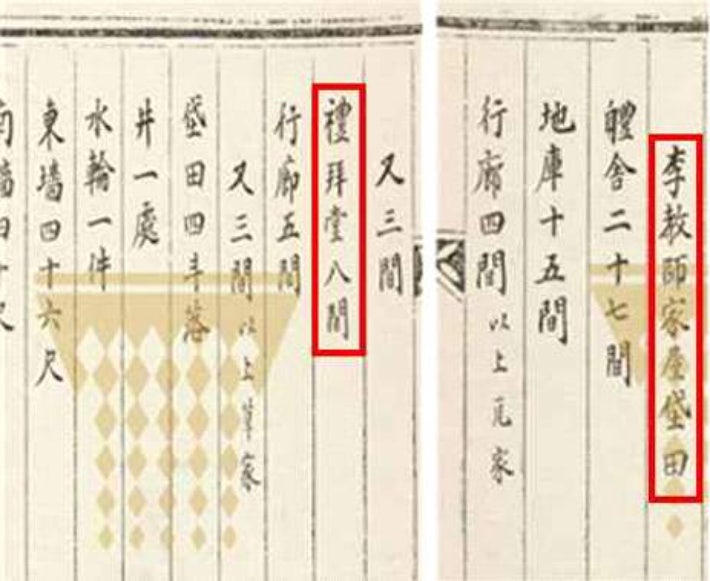 李教師家屋垈田
體舍二十七間
地庫十五間
行廊四間 以上瓦家
又三間
禮拜堂八間
行廊五間
又三間 以上草家
垈田四斗落
井一處
水輪一件
東墻四十六尺
南墻四十尺